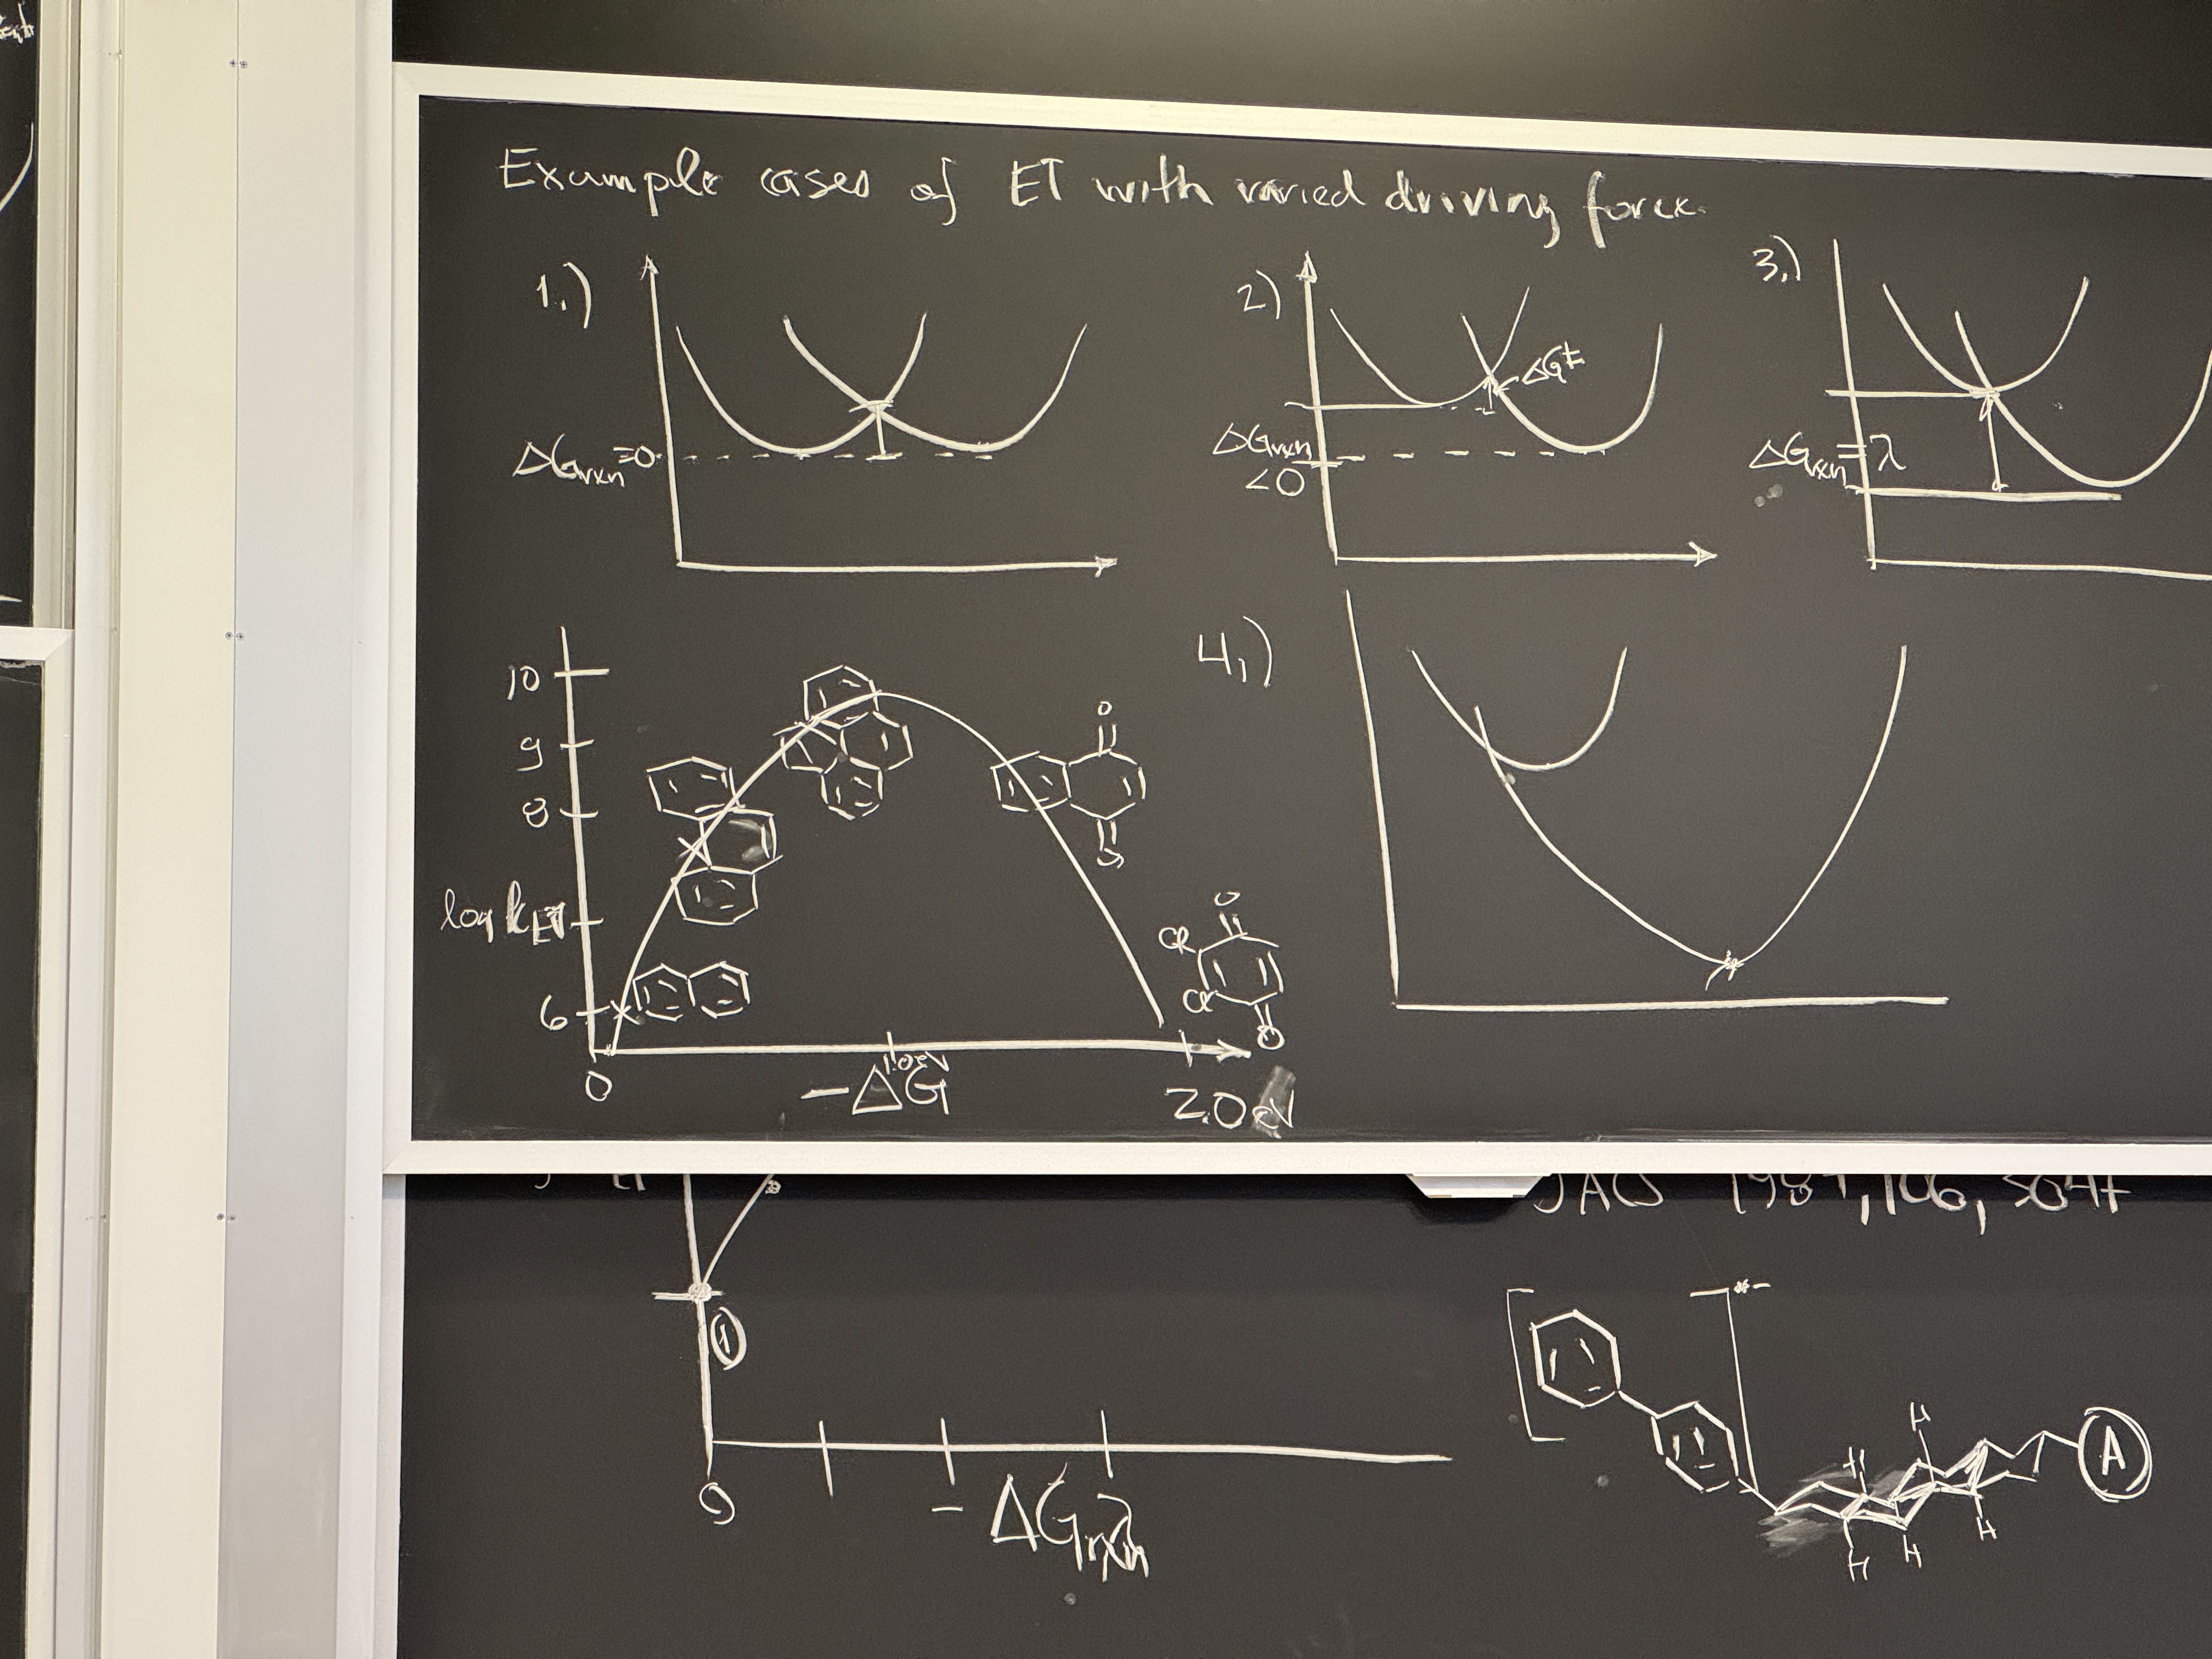 Example cases of ET with varied driving force.
1.)
ΔGrxn=0
2)
ΔG‡
ΔGrxn
<0
3.)
ΔGrxn=λ
10
9
8
log kET
6
0
1.0eV
-ΔG
2.0eV
O
O
O
Cl
Cl
O
4.)
JACS 1984, 106, 5047
1
0
-ΔGrxn
λ
•-
H
H
H
H
H
A